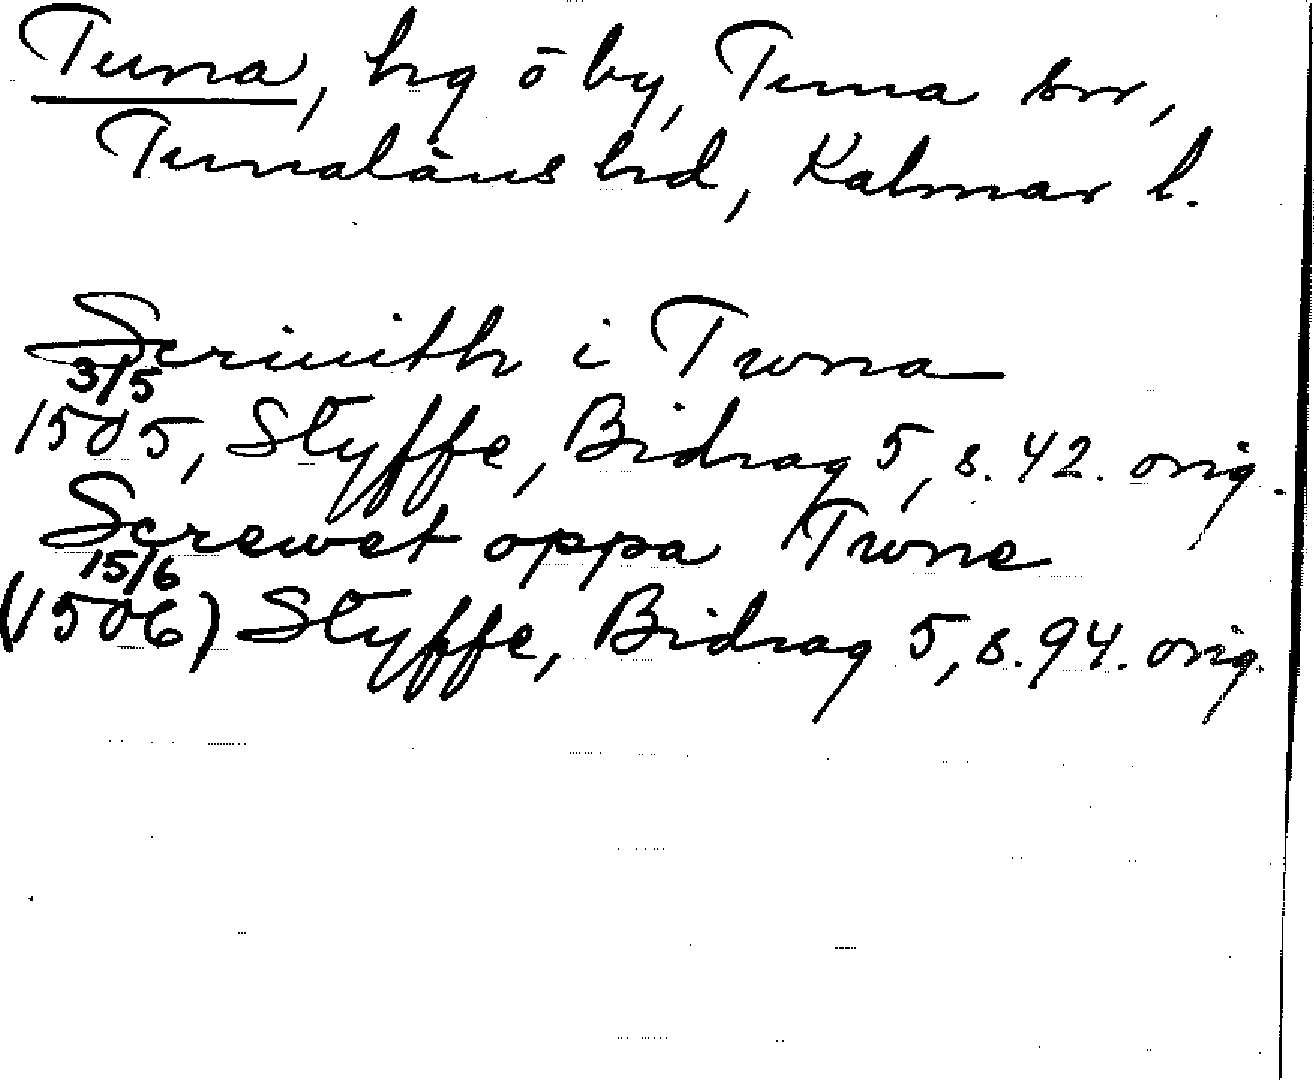 Tuna, hg o by, Tuna sn,
Tunaläns hd, Kalmar l.
Scriuith i Twna
3/5
1505, Styffe, Bidrag 5, s. 42. orig.
Screwet oppa Twne
15/6
(1506) Styffe, Bidrag 5, s. 94. orig.